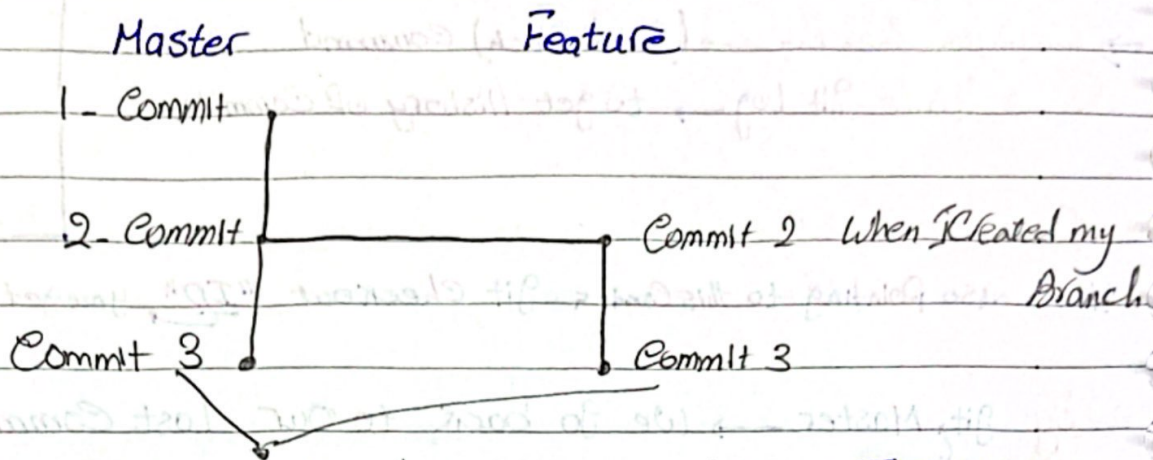 Master Feature
1- Commit
2- Commit Commit 2 When I Created my
Branch
Commit 3 Commit 3